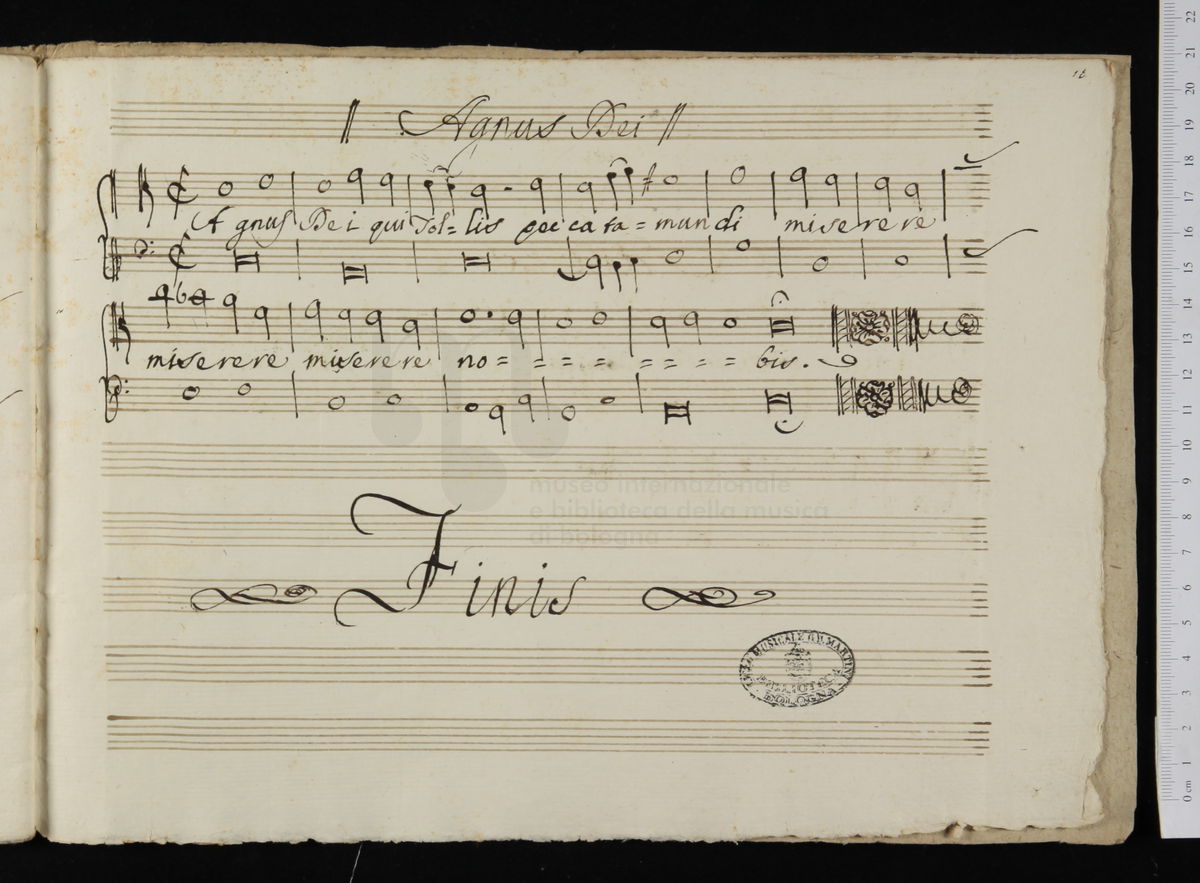 18
Agnus Dei
Agnus Dei qui Tol= lis pecca ta = mundi miserere
miserere miserere no = = = = = = = = bis.
museo internazionale
e biblioteca della musica
di bologna
Finis
MUSICALE G.B. MARTINI
BIBLIOTECA
BOLOGNA
0 cm 1 2 3 4 5 6 7 8 9 10 11 12 13 14 15 16 17 18 19 20 21 22